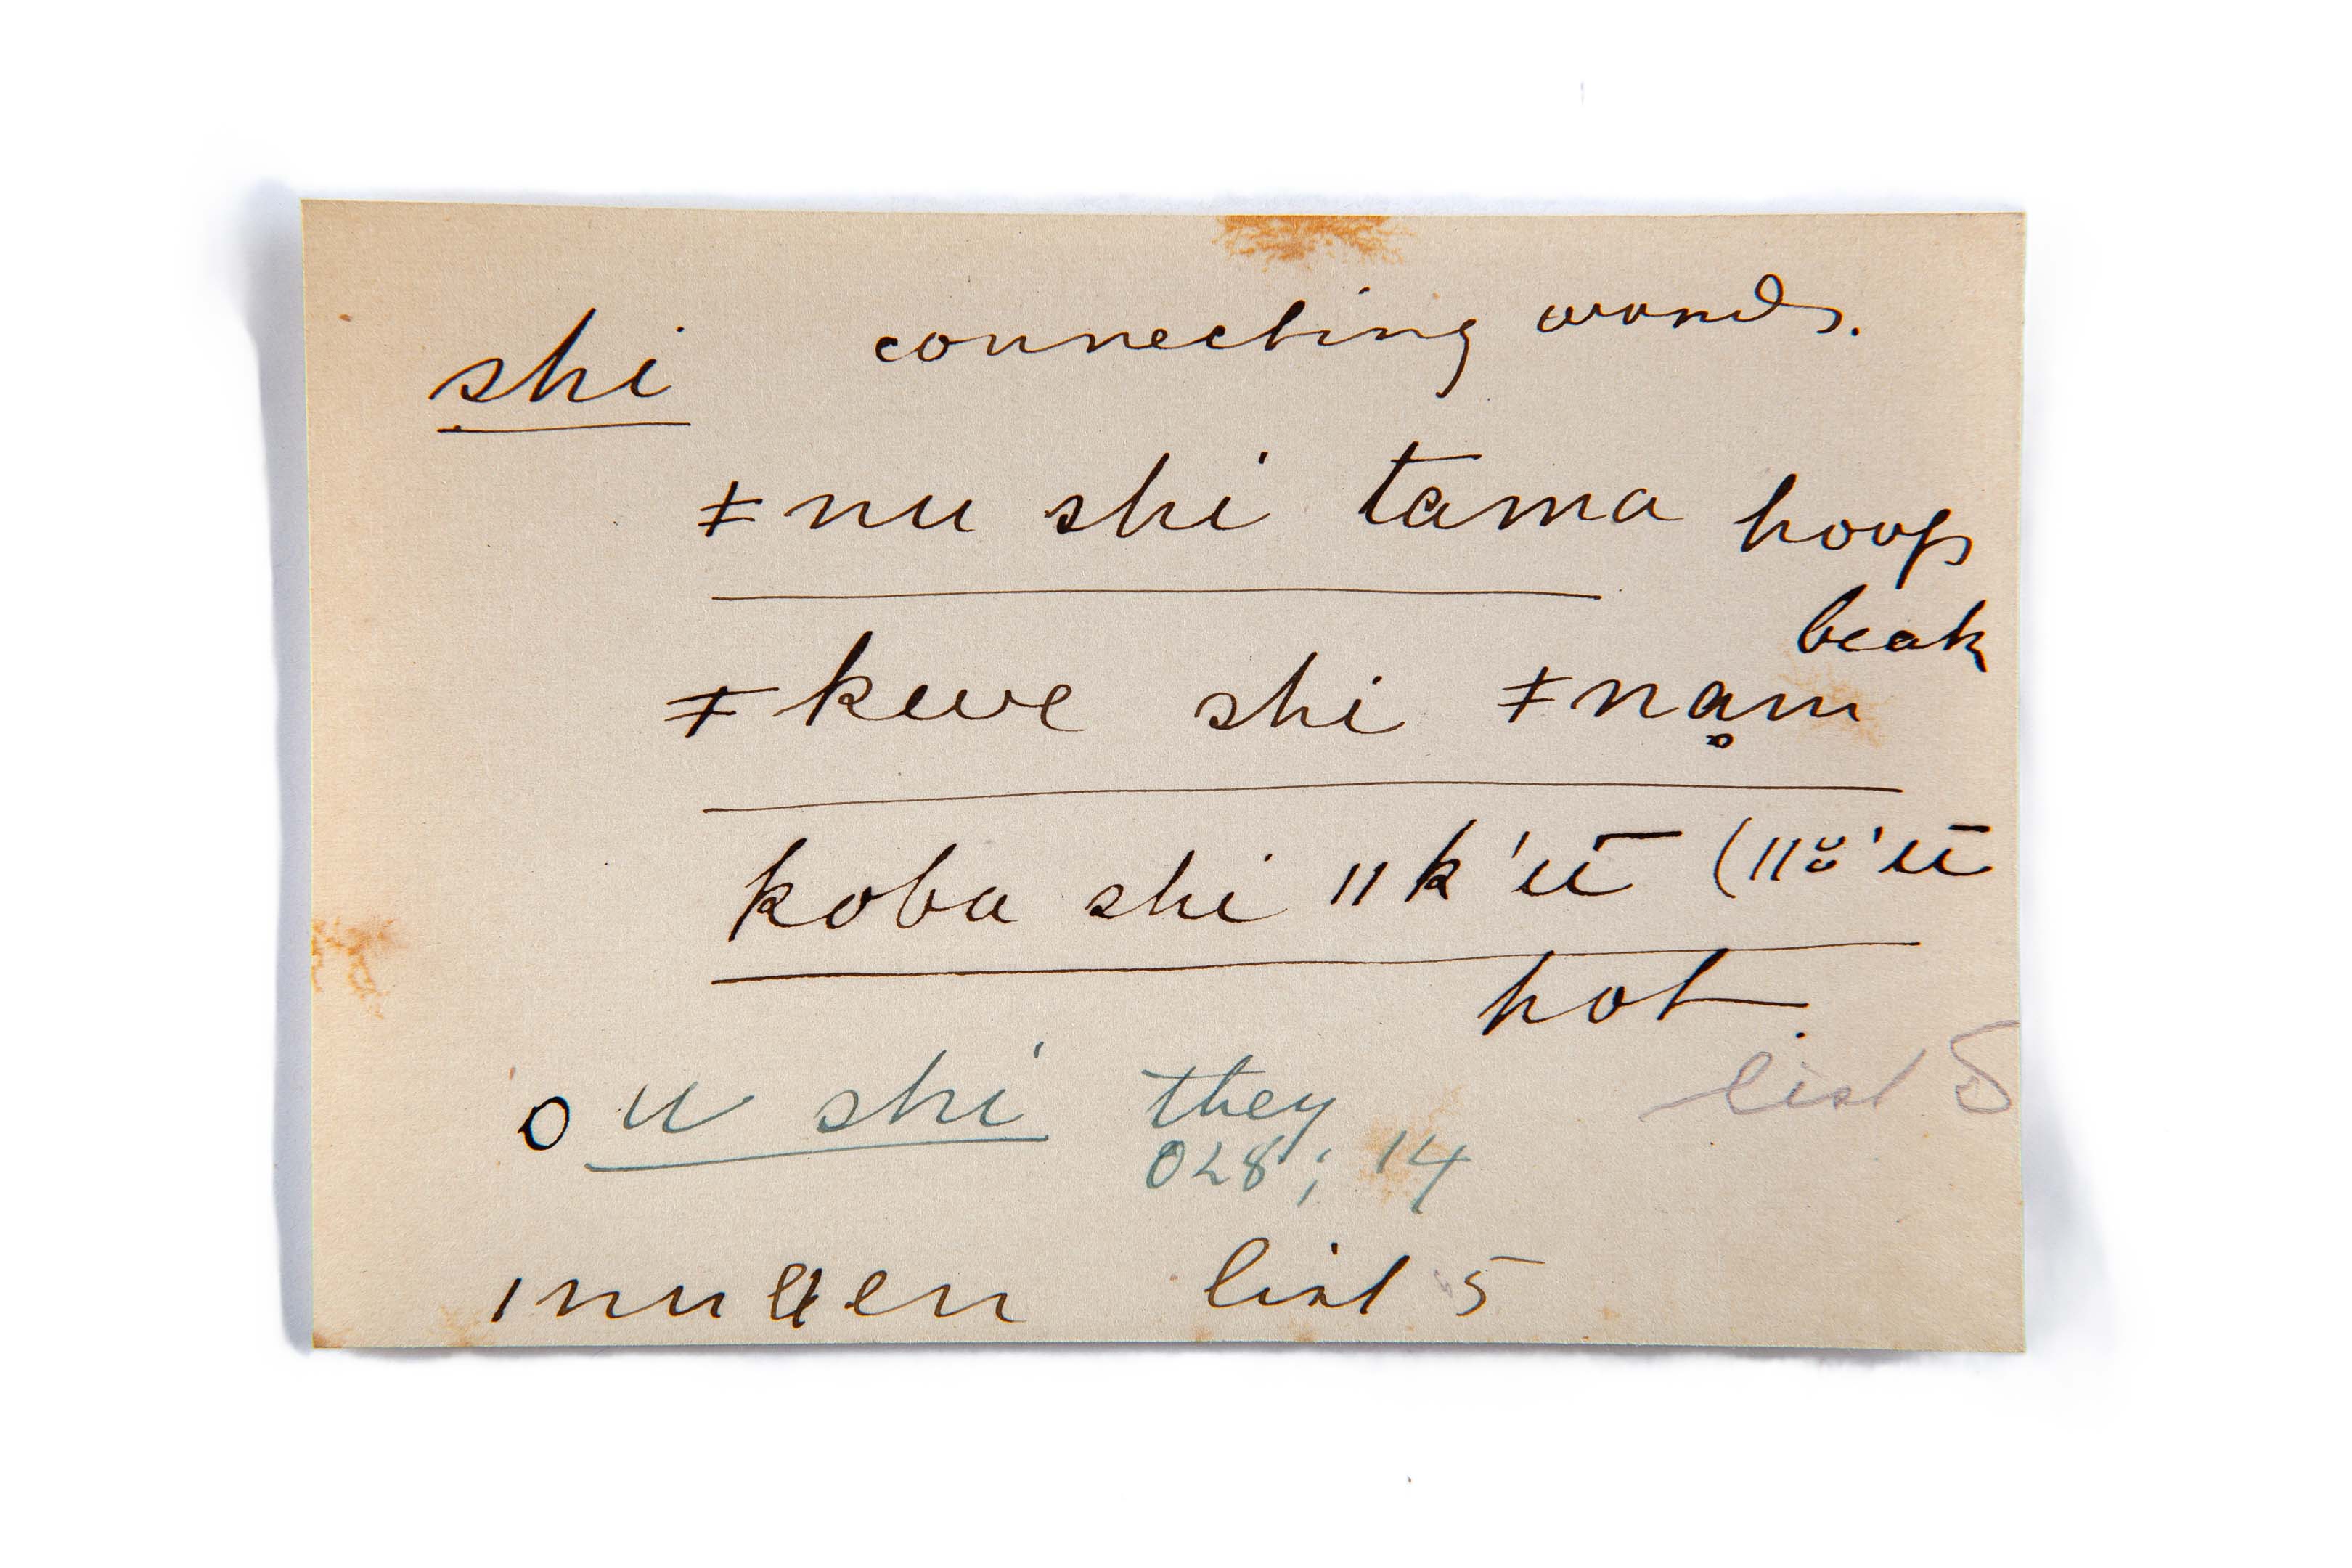 shi connecting words.
ǂnu shi tama hoofs
beak
ǂkewe shi ǂnạm
koba shi ǁk'ū (ǁ 'ū
hot.
o u shi they list 5
028; 14
list 5